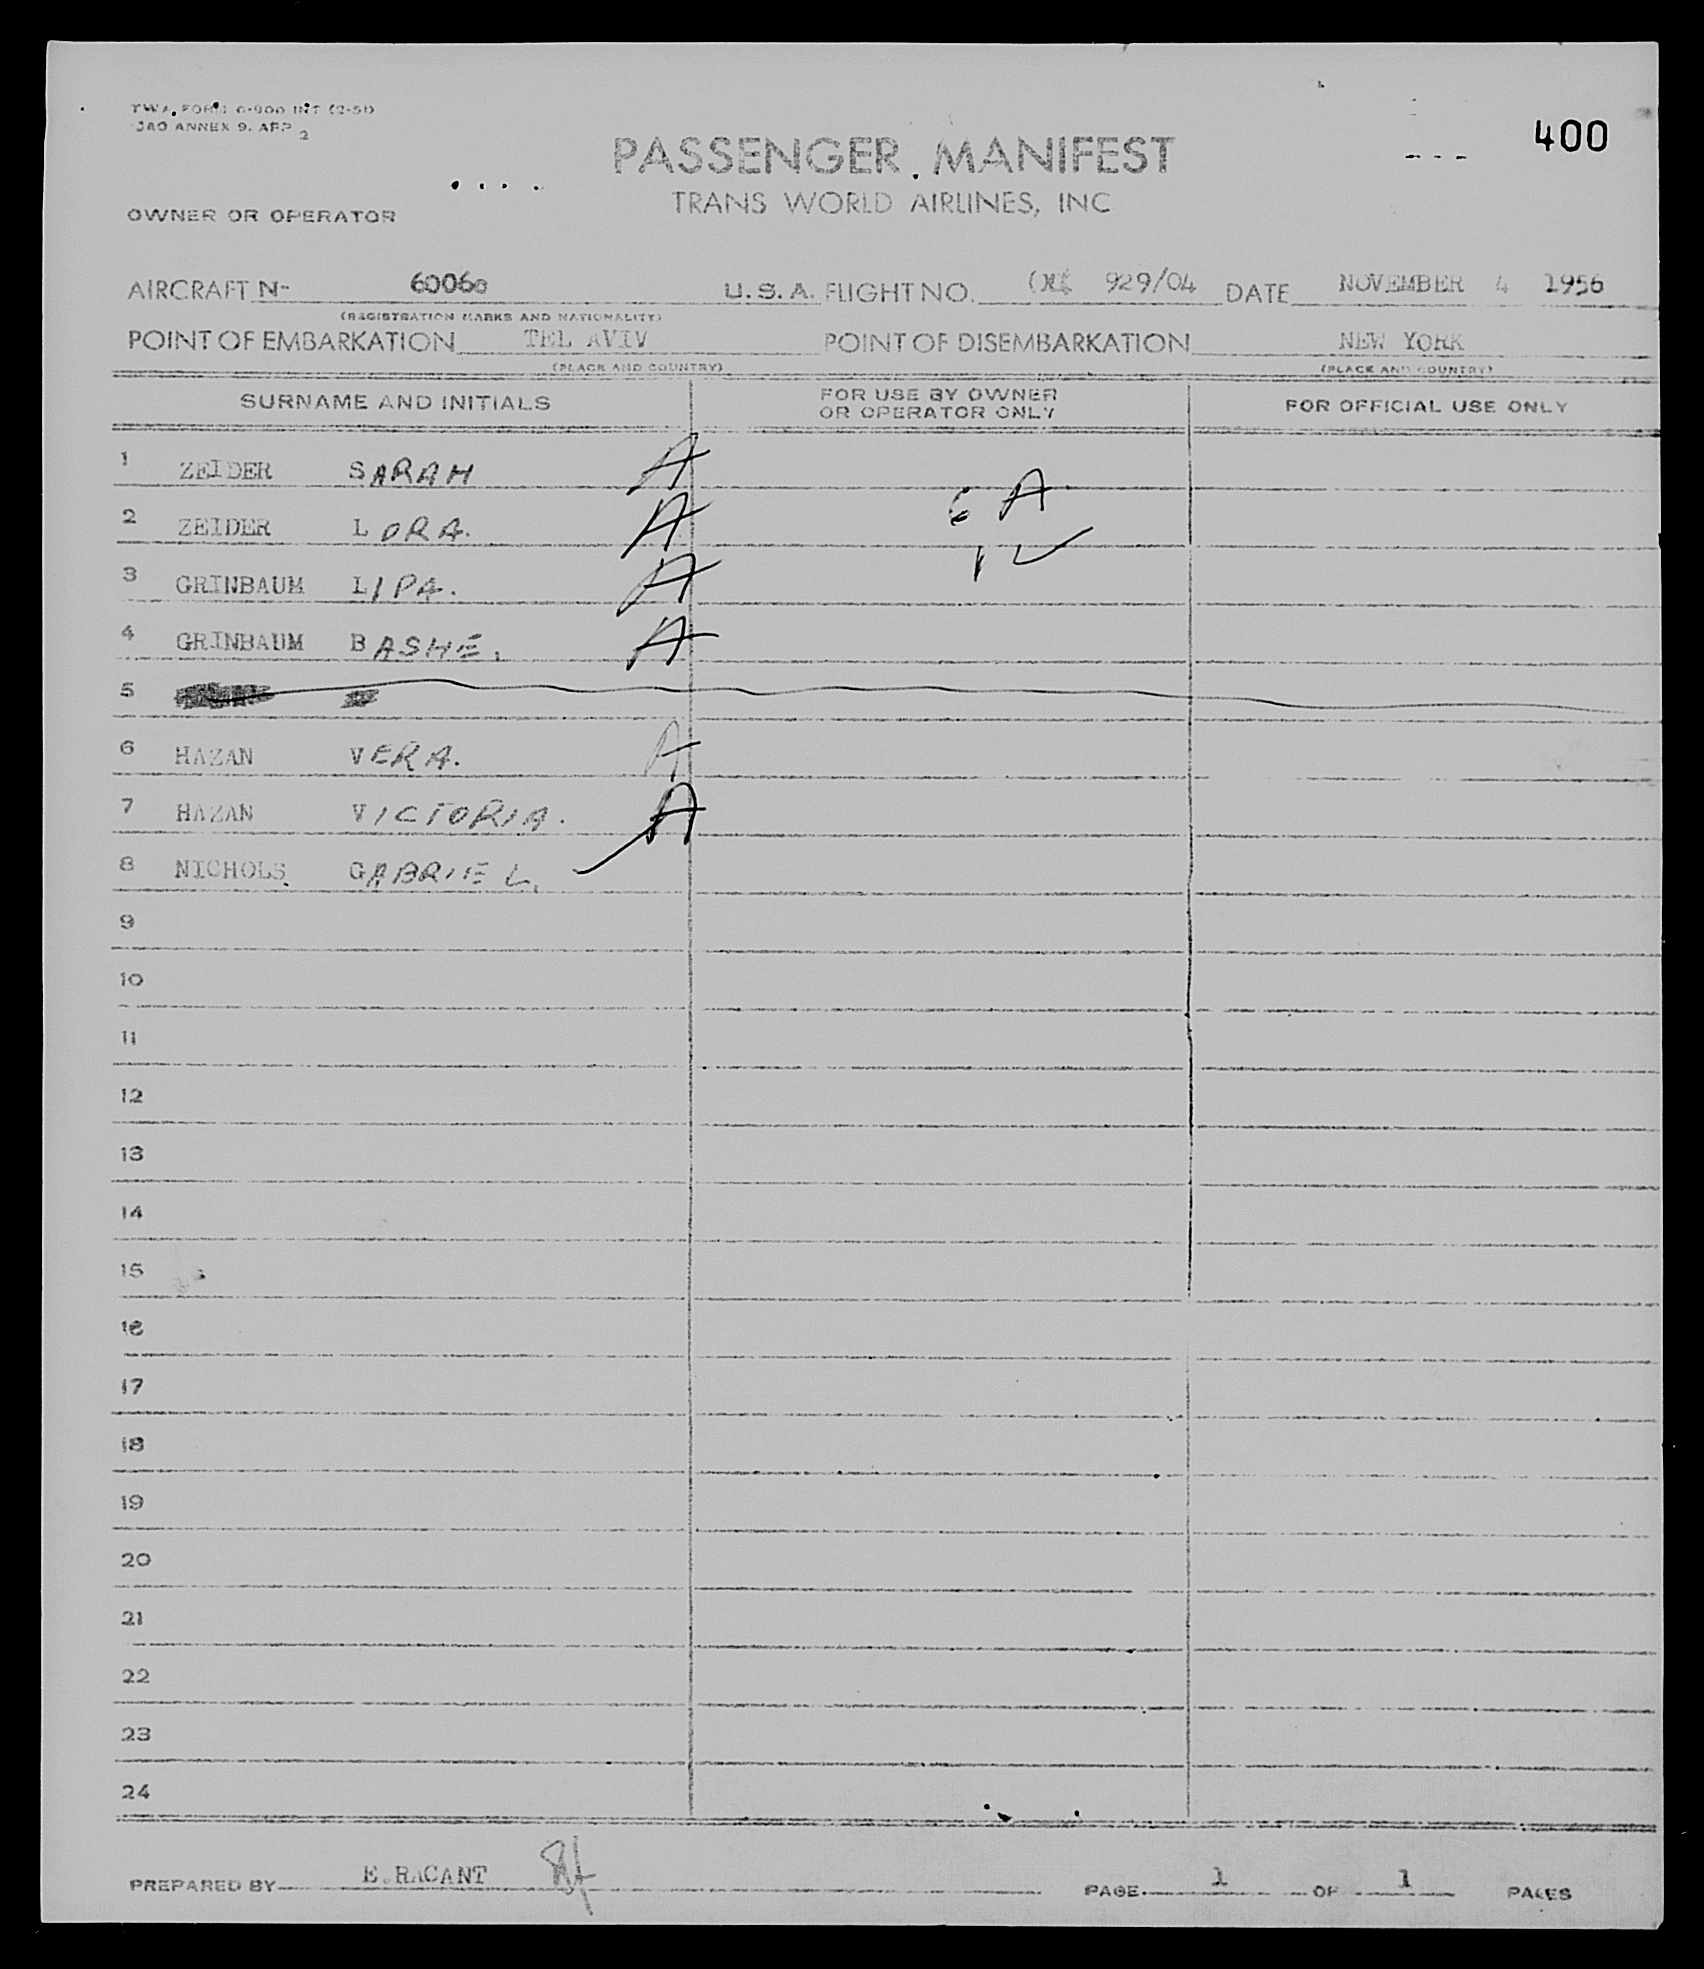 TWA FORM 0-900 INT (2-51)
ICAO ANNEX 9. APP 2
400
PASSENGER MANIFEST
TRANS WORLD AIRLINES, INC
OWNER OR OPERATOR
AIRCRAFT N- 6006C U.S.A. FLIGHT NO. 929/04 DATE NOVEMBER 4 1956
(REGISTRATION MARKS AND NATIONALITY)
POINT OF EMBARKATION TEL AVIV POINT OF DISEMBARKATION NEW YORK
(PLACE AND COUNTRY) (PLACE AND COUNTRY)
SURNAME AND INITIALS FOR USE BY OWNER OR OPERATOR ONLY FOR OFFICIAL USE ONLY
1 ZEIDER SARAH A
6 A
2 ZEIDER LORA. A
1 ✓
3 GRINBAUM LIPA. A
4 GRINBAUM BASHE. A
5
6 HAZAN VERA. A
7 HAZAN VICTORIA. A
8 NICHOLS. GABRIEL. ✓
9
10
11
12
13
14
15
16
17
18
19
20
21
22
23
24
PREPARED BY E.RACANT PAGE 1 OF 1 PAGES